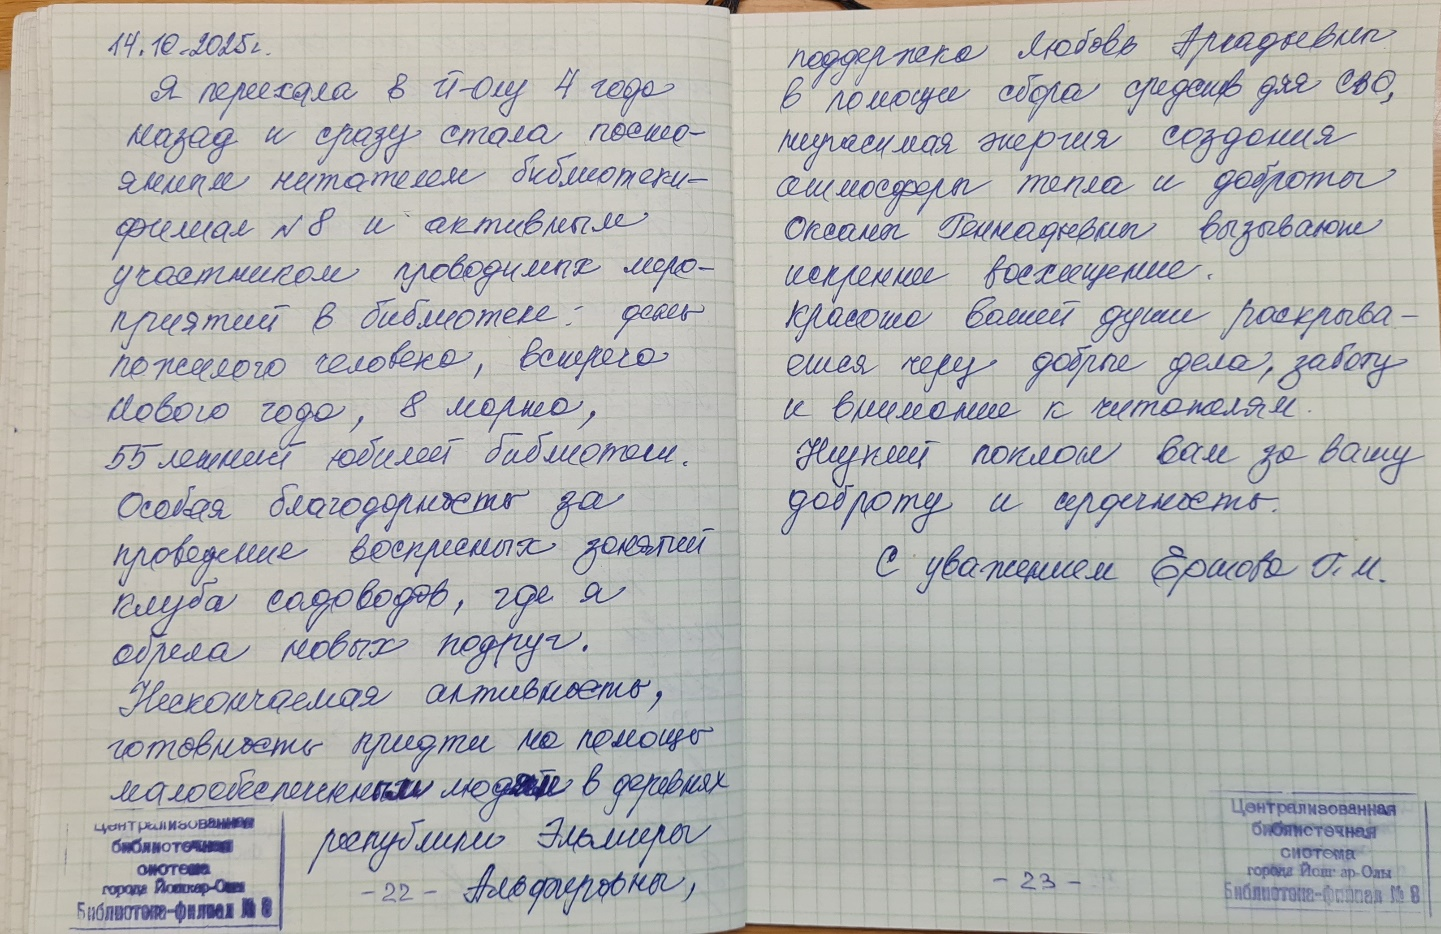 14.10.2025г.
Я переехала в Й-Олу 4 года
назад и сразу стала посто-
янным читателем библиотеки-
филиал №8 и активным
участником проводимых меро-
приятий в библиотеке: день
пожилого человека, встреча
Нового года, 8 марта,
55 летний юбилей библиотеки.
Особая благодарность за
проведение воскресных занятий
клуба садоводов, где я
обрела новых подруг.
Нескончаемая активность,
готовность придти на помощь
малообеспеченным людям в деревнях
республики Эльмиры
- 22 - Альфировны,
Централизованная
библиотечная
система
города Йошкар-Олы
Библиотека-филиал № 8
поддержка Любовь Аркадьевны
в помощи сбора средств для СВО,
неугасимая энергия создания
атмосферы тепла и доброты
Оксаны Геннадьевны вызывают
искренне восхищение.
Красота вашей души раскрыва-
ется через добрые дела, заботу
и внимание к читателям.
Низкий поклон вам за вашу
доброту и сердечность.
С уважением Ершова Г.М.
- 23 -
Централизованная
библиотечная
система
города Йошкар-Олы
Библиотека-филиал № 8